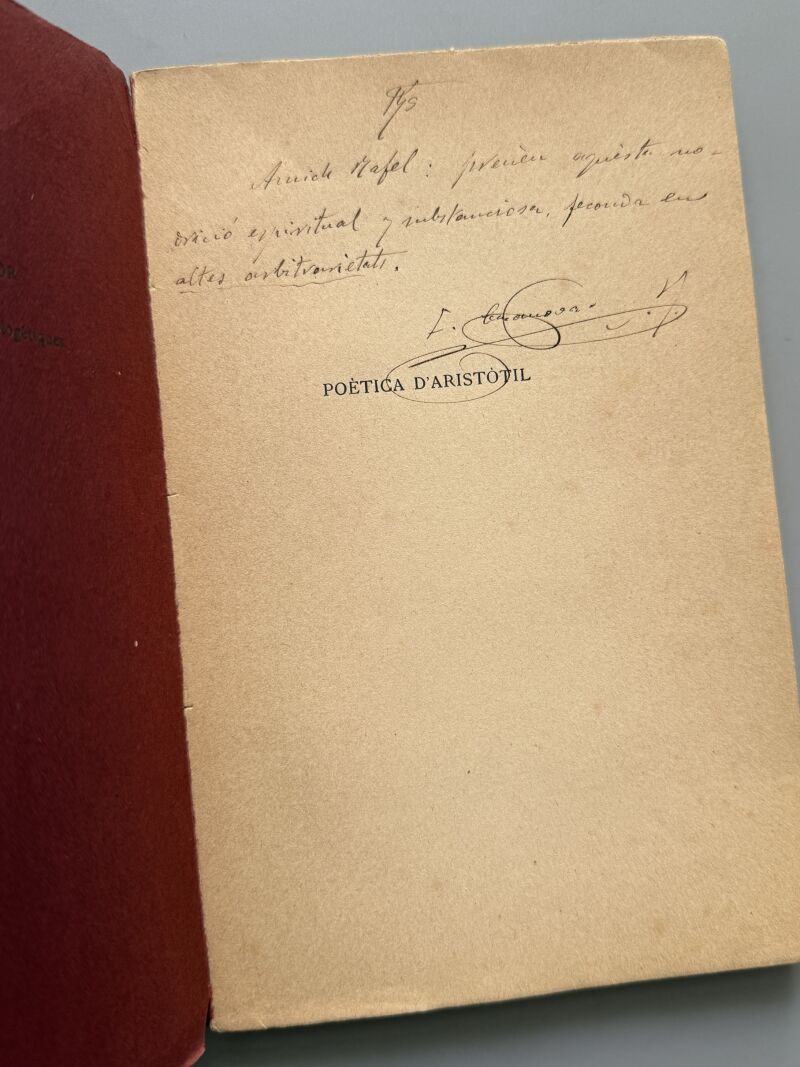 Amich Rafel: prenèu aquèsta no-
drició espiritual y substanciosa, feconda en
altes arbitrarietats.
E. Casanovas
POÈTICA D'ARISTÒTIL
OR